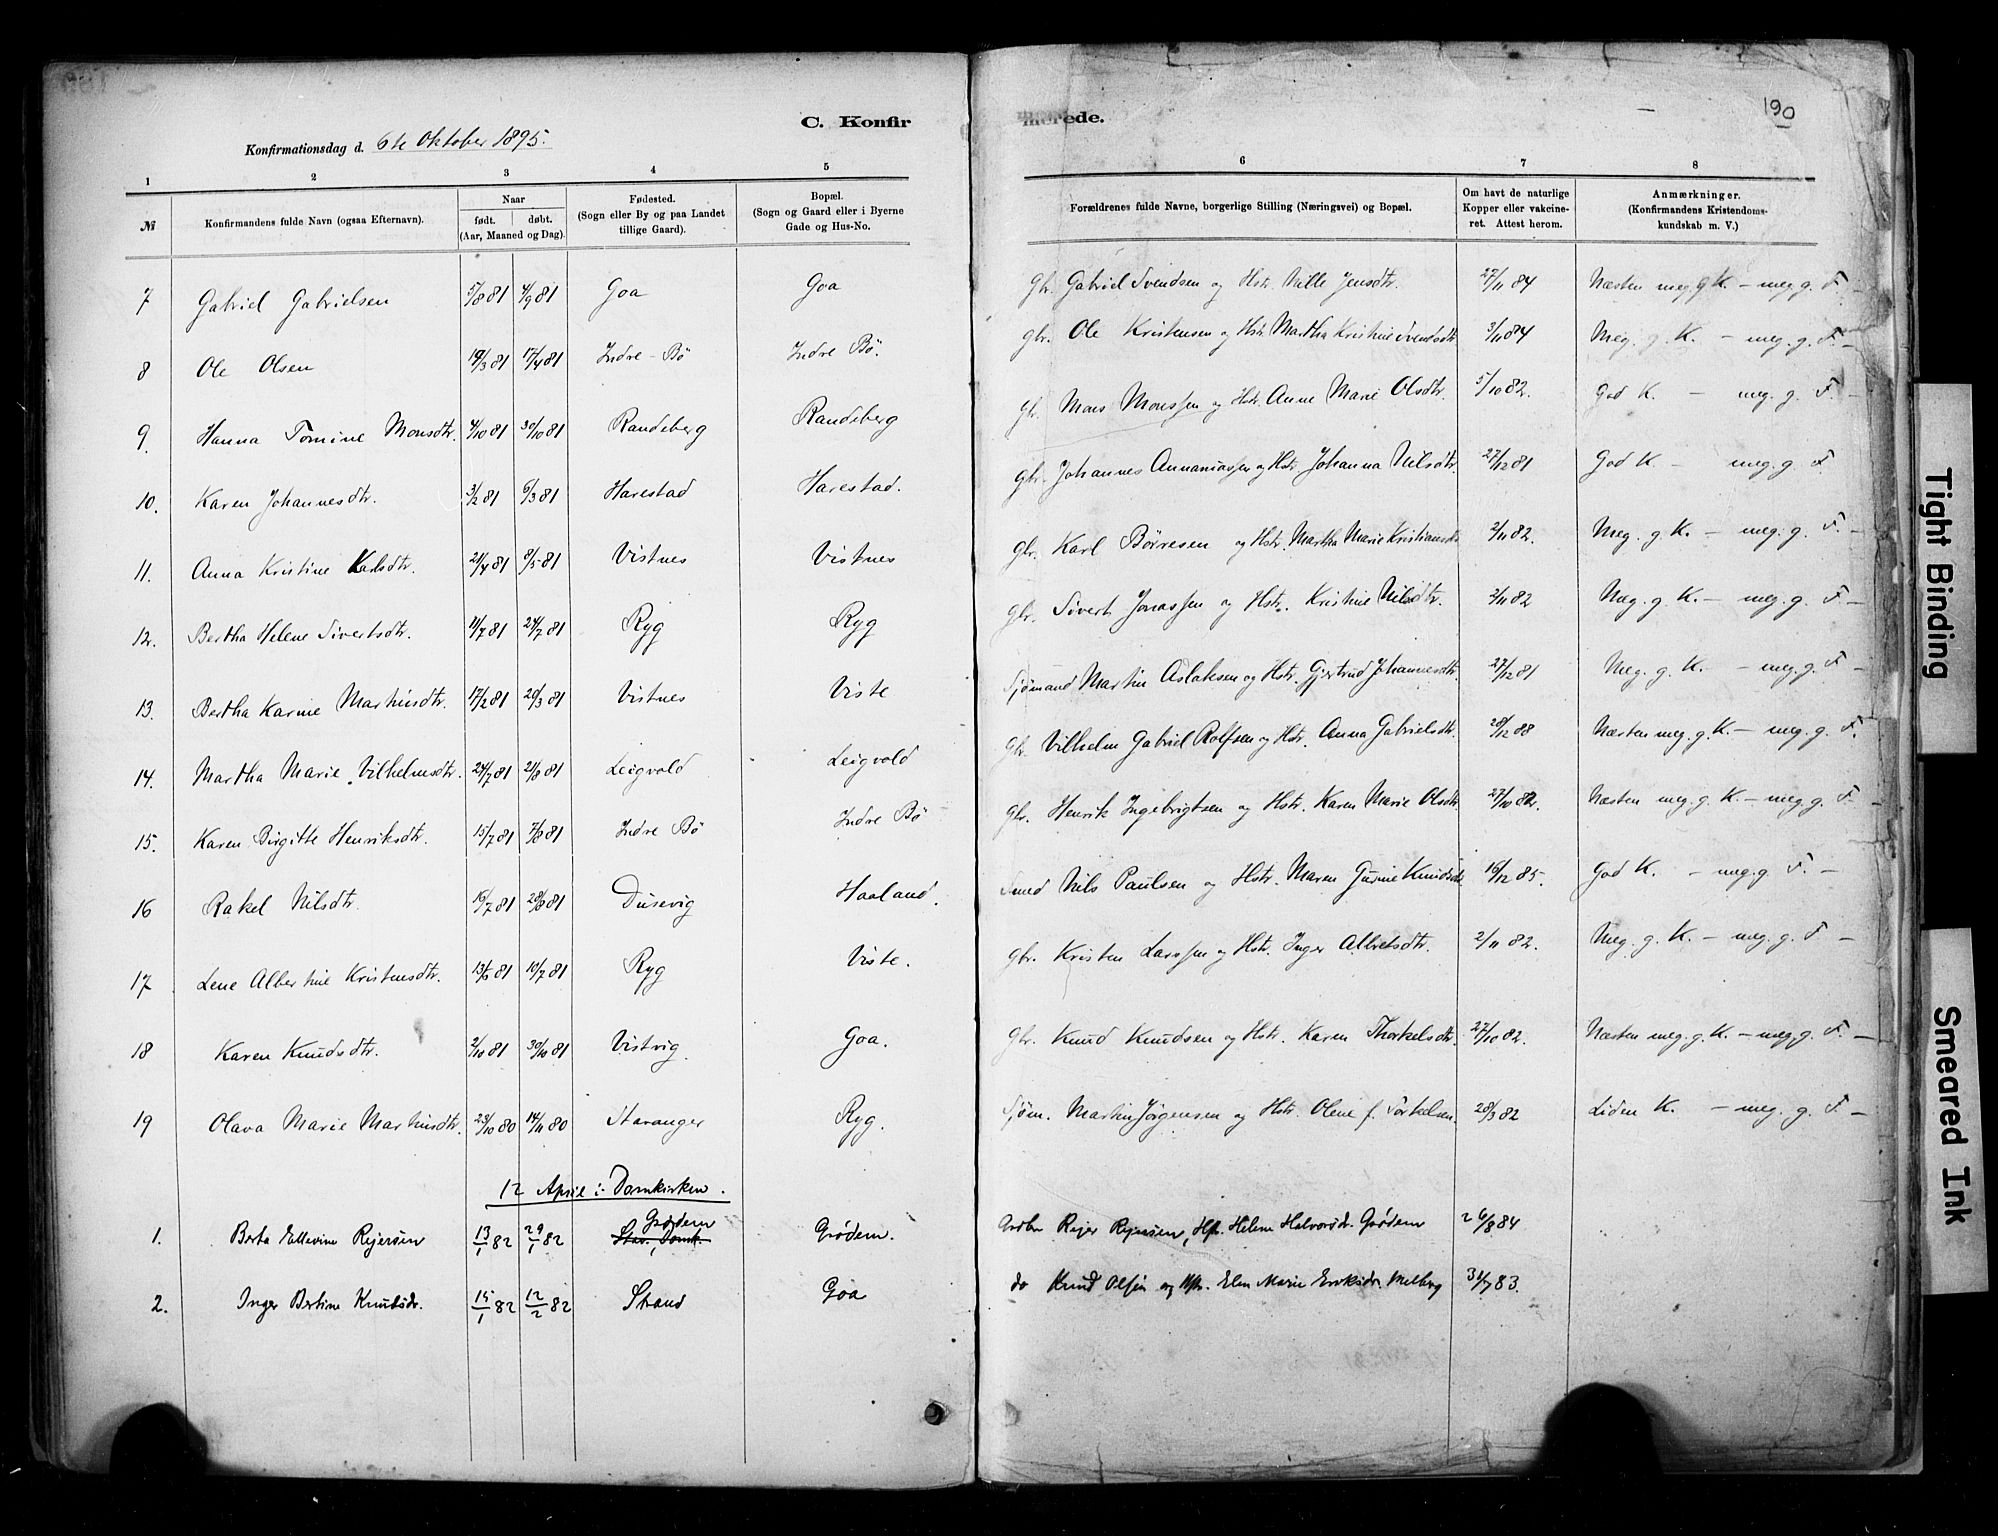 C. Konfirmerede.
190
Konfirmationsdag d. 6te Oktober 1895.
1 2 3 4 5 6 7 8
№
Konfirmandens fulde Navn (ogsaa Efternavn).
Naar
født. døbt.
(Aar, Maaned og Dag).
Fødested.
(Sogn eller By og paa Landet
tillige Gaard).
Bopæl.
(Sogn og Gaard eller i Byerne
Gade og Hus-No.
Forældrenes fulde Navne, borgerlige Stilling (Næringsvei) og Bopæl.
Om havt de naturlige
Kopper eller vakcine-
ret. Attest herom.
Anmærkninger.
(Konfirmandens Kristendoms-
kundskab m. V.)
7 Gabriel Gabrielsen 5/8 81 4/9 81 Goa Goa Gbr. Gabriel Svendsen og Hstr. Nille Jensdtr. 27/11 84 Næsten meg. g. K. — meg. g. F. —
8 Ole Olsen 19/3 81 17/4 81 Indre-Bø Indre Bø. gbr. Ole Kristensen og Hstr. Martha Kristine Svendsdtr. 3/11 84 Meg. g. K. — meg. g. F. —
9. Hanna Tomine Monsdtr. 4/10 81 30/10 81 Randeberg Randeberg gbr. Mons Monssen og Hstr. Anne Marie Olsdtr. 5/10 82. God K. — meg. g. F. —
10. Karen Johannesdtr. 3/2 81 6/3 81 Harestad Harestad. gbr. Johannes Annaniassen og Hstr. Johanna Nilsdtr. 27/12 81 God K. — meg. g. F.
11. Anna Kristine Karlsdtr. 21/4 81 8/5 81 Vistnes Vistnes gbr. Karl Børresen og Hstr. Martha Marie Kristiansdtr. 2/11 82. Meg. g. K. — meg. g. F. —
12. Bertha Helene Sivertsdtr. 11/7 81 24/7 81 Ryg Ryg gbr. Sivert Jonassen og Hstr. Kristine Nilsdtr. 2/11 82 Meg. g. K. — meg. g. F. —
13. Bertha Karine Martinsdtr. 17/2 81 20/3 81 Vistnes Viste Sjømand Martin Aslaksen og Hstr. Gjertrud Johannesdtr. 27/12 81 Meg. g. K. — meg. g. F —
14. Martha Marie Vilhelmsdtr. 24/7 81 21/8 81 Leigvold Leigvold Gbr. Vilhelm Gabriel Rolfsen og Hstr. Anna Gabrielsdtr. 28/12 88 Næsten meg. g. K. — meg. g. F.
15. Karen Birgitte Henriksdtr. 15/7 81 7/8 81 Indre Bø Indre Bø gbr. Henrik Ingebrigtsen og Hstr. Karen Marie Olsdtr. 27/10 82. Næsten meg. g. K. — meg. g. F. —
16 Rakel Nilsdtr. 16/7 81 28/8 81 Dusevig Haaland. Smed Nils Paulsen og Hstr. Maren Gurine Knudsdtr. 16/12 85. God K. — meg. g. F. —
17 Lene Albertine Kristensdtr. 13/6 81 10/7 81 Ryg Viste. gbr. Kristen Larssen og Hstr. Inger Albretsdtr. 2/11 82. Meg. g. K. — meg. g. F —
18 Karen Knudsdtr. 2/10 81 30/10 81 Vistvig. Goa. Gbr. Knud Knudsen og Hstr. Karen Thorkelsdtr. 27/10 82. Næsten meg. g. K. — meg. g. F. —
19 Olava Marie Martinsdtr. 23/10 80 14/11 80 Stavanger Ryg. Sjøm. Martin Jørgensen og Hstr. Olene f. Torkelsen. 28/3 82 Liden K. — meg. g. F. —
12 April i Domkirken.
1. Berta Ellevine Rejersen 13/1 82 29/1 82 Grødem Stav., Domk. Grødem. Grdbr Rejer Rejersen, Hstr. Helene Halvorsdr. Grødem 26/8 84
2. Inger Bertine Knutsdr. 15/1 82 12/2 82 Strand Goa do Knud Olsen og Hstr. Elen Marie Eriksdr. Melberg 31/7 83.
Tight Binding
Smeared Ink